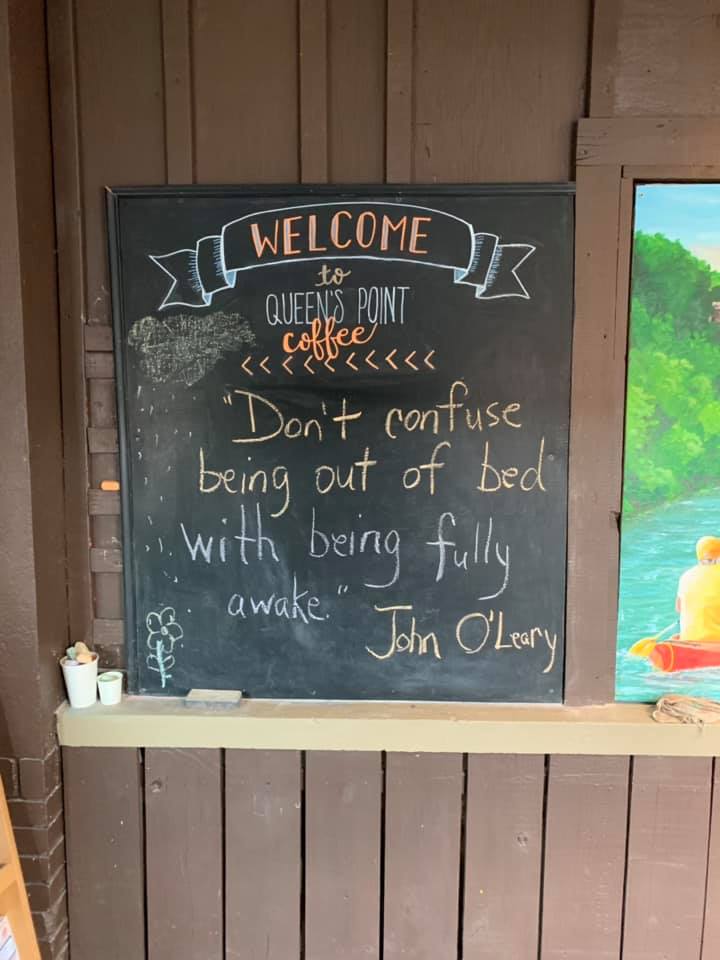 WELCOME
to
QUEEN'S POINT
coffee
<<<<<<<<<
"Don't confuse
being out of bed
with being fully
awake."
John O'Leary